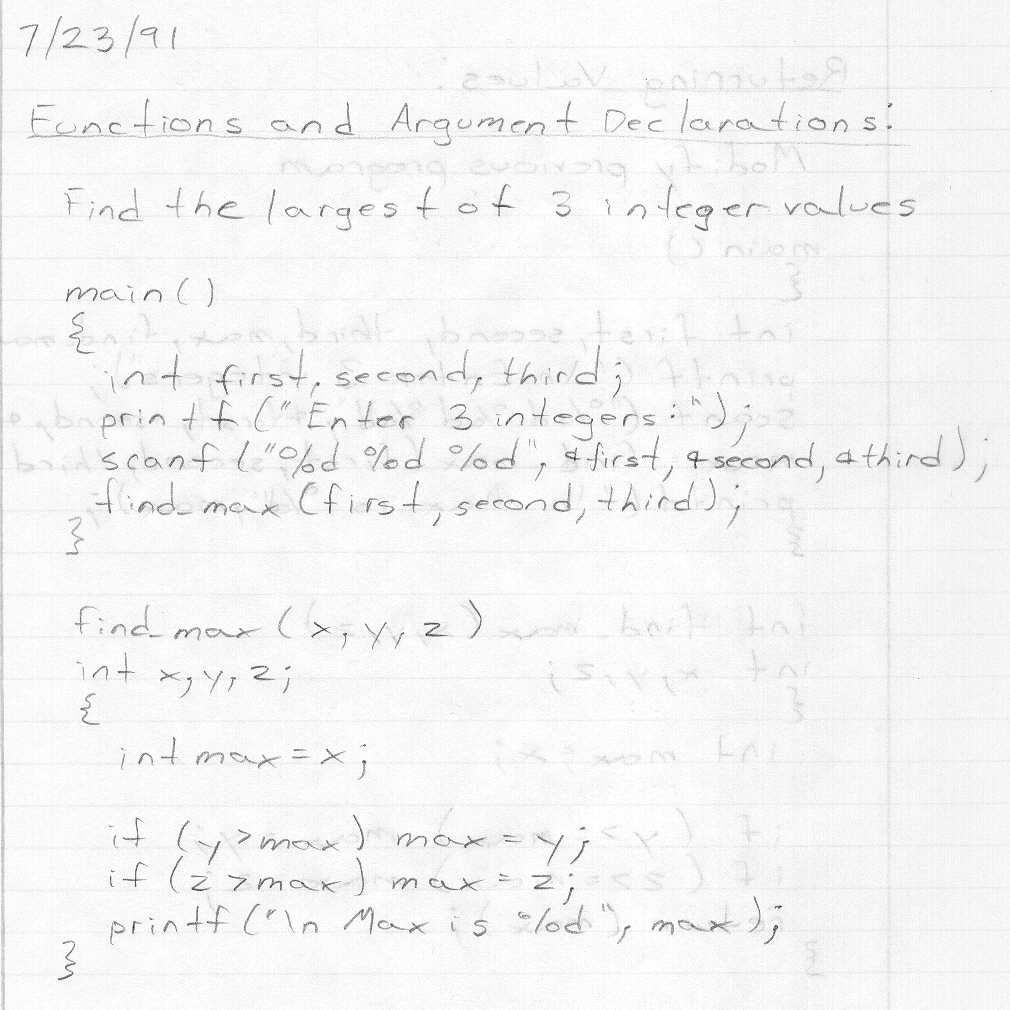 7/23/91
Functions and Argument Declarations:
Find the largest of 3 integer values
main()
{
int first, second, third;
printf ("Enter 3 integers:");
scanf ("%d %d %d", &first, &second, &third);
find_max (first, second, third);
}
find_max (x, y, z)
int x, y, z;
{
int max = x;
if (y > max) max = y;
if (z > max) max = z;
printf ("\n Max is %d", max);
}